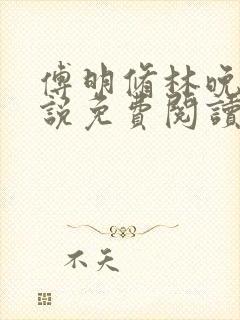 傅明脩林晚
說免費閱讀
不天